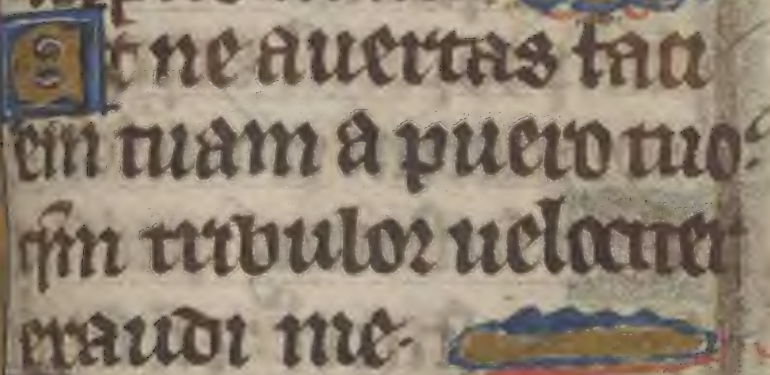 Et ne auertas faci
em tuam a puero tuo:
qm̄ tribulor uelociter
exaudi me.